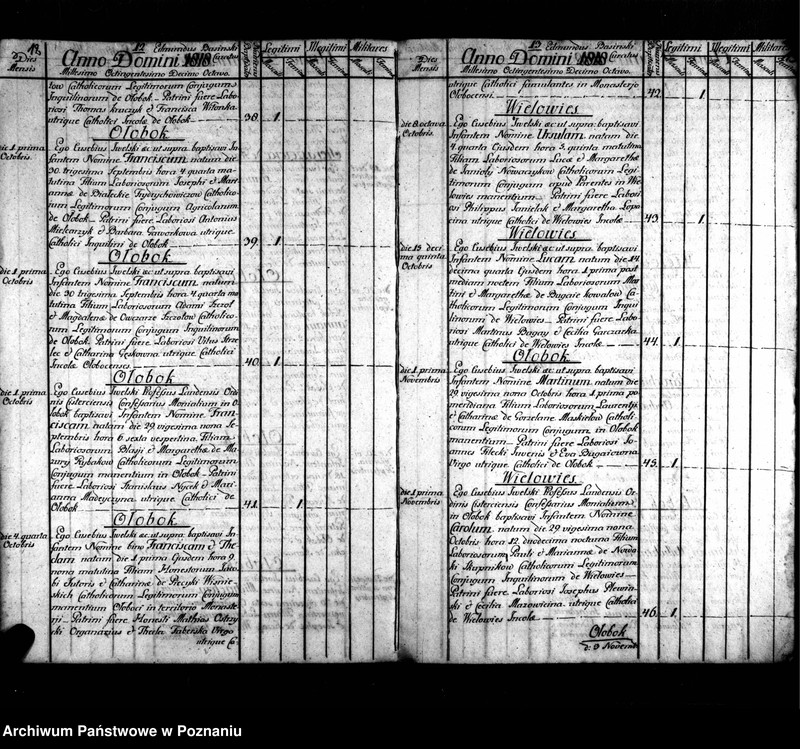 12
Edmundus Basinski
Curatus
Anno Domini 1818
Millesimo Octingentesimo Decimo Octavo.
Dies
Mensis
Legitimi
Illegitimi
Militares
tow Catholicorum Legitimorum Conjugum
Inquilinorum de Olobok Patrini fuere Labo
riosi Thomas Kruczyk & Francisca
utrique Catholici Incolæ de Olobok 38. 1
Olobok
die 1 prima
Octobris.
Ego Eusebius Iwelski ac ut supra baptisavi In
fantem Nomine Franciscum natum die
30 trigesima Septembris hora 4 quarta ma
tutina Filium Laboriosorum Josephi & Mari
annæ de
rum Legitimorum Conjugum Agricolarum
de Olobok Patrini fuere Laboriosi Antonius
Mielcarzyk & Barbara Gawronkowa utrique
Catholici Inquilini de Olobok 39. 1
Olobok
die 1 prima
Octobris
Ego Eusebius Iwelski ac ut supra baptisavi
Infantem Nomine Franciscum natum
die 30 trigesima Septembris hora 4 quarta ma
tutina Filium Laboriosorum Adami
& Magdalenæ de Owczarze Catholico
rum Legitimorum Conjugum Inquilinorum
de Olobok. Patrini fuere Laboriosi Vitus
& Catharina utrique Catholici
Incolæ Olobocenses 40. 1
Olobok
die 1 prima
Octobris
Ego Eusebius Iwelski Professus Landensis Ord
inis Cisterciensis Confessarius Monialium in O
lobok baptisavi Infantem Nomine Fran
ciscam natam die 29 vigesima nona Se
ptembris hora 6 sexta vespertina Filiam
Laboriosorum Blasii & Margarethæ de Ma
zury Rybakow Catholicorum Legitimorum
Conjugum manentium in Olobok Patrini
fuere Laboriosi Stanislaus & Mari
anna utrique Catholici de
Olobok 41. 1
Olobok
die 4 quarta
Octobris
Ego Eusebius Iwelski ac ut supra baptisavi In
fantem Nomine bino Franciscam & The
clam natam die 1 prima Ejusdem hora 9
nona matutina Filiam Honestorum Jaco
bi Sutoris & Catharinæ de
skich Catholicorum Legitimorum Conjugum
manentium Oloboci in territorio Monaste
rii Patrini fuere Honesti Mathias
ski Organarius & Thecla Taberska Virgo
utrique Ca
13
Edmundus Basinski
Curatus
Anno Domini 1818
Millesimo Octingentesimo Decimo Octavo.
Dies
Mensis
Legitimi
Illegitimi
Militares
utrique Catholici famulantes in Monasterio
Olobocensi 42. 1
Wielowies
die 8 octava
Octobris.
Ego Eusebius Iwelski ac ut supra baptisavi
Infantem Nomine Ursulam natam die
4 quarta Ejusdem hora 5 quinta matutina
Filiam Laboriosorum Lucæ & Margarethæ
de Janioły Nowaczykow Catholicorum Legi
timorum Conjugum apud Parentes in Wie
lowies manentium Patrini fuere Labori
osi Philippus Jamielak & Margaretha Lopa
cina utrique Catholici de Wielowies Incolæ 43. 1
Wielowies
die 15 deci
ma quinta
Octobris
Ego Eusebius Iwelski ac ut supra baptisavi
Infantem Nomine Lucam natum die 14
decima quarta Ejusdem hora 1 prima post
mediam noctem Filium Laboriosorum Mar
tini & Margarethæ de Bugaie Kowalow Ca
tholicorum Legitimorum Conjugum Inqui
linorum de Wielowies Patrini fuere Labo
riosi Martinus Bugay & Cecilia Garczarka
utrique Catholici de Wielowies Incolæ 44. 1
Olobok
die 1 prima
Novembris
Ego Eusebius Iwelski ac ut supra baptisavi
Infantem Nomine Martinum natum die
29 vigesima nona Octobris hora 1 prima po
meridiana Filium Laboriosorum Laurentii
& Catharinæ de Gorzelane Maskirlow Catholi
corum Legitimorum Conjugum in Olobok
manentium Patrini fuere Laboriosi Jo
annes Filecki Juvenis & Eva Bugaiczonna
Virgo utrique Catholici de Olobok 45. 1
Wielowies
die 1 prima
Novembris
Ego Eusebius Iwelski Professus Landensis Or
dinis Cisterciensis Confessarius Monialium
in Olobok baptisavi Infantem Nomine
Carolum natum die 29 vigesima nona
Octobris hora 12 duodecima nocturna Filium
Laboriosorum Pauli & Mariannæ de Nowa
ki Skapnikow Catholicorum Legitimorum
Conjugum Inquilinorum de Wielowies
Patrini fuere Laboriosi Josephus Plewin
ski & Cecilia Mazowicina utrique Catholici
de Wielowies Incolæ 46. 1
Olobok
d: 9 Novem
Archiwum Państwowe w Poznaniu